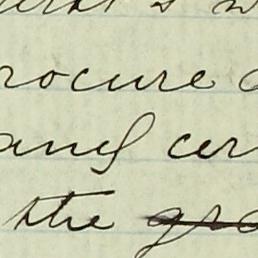 rocure
and cer
the gra